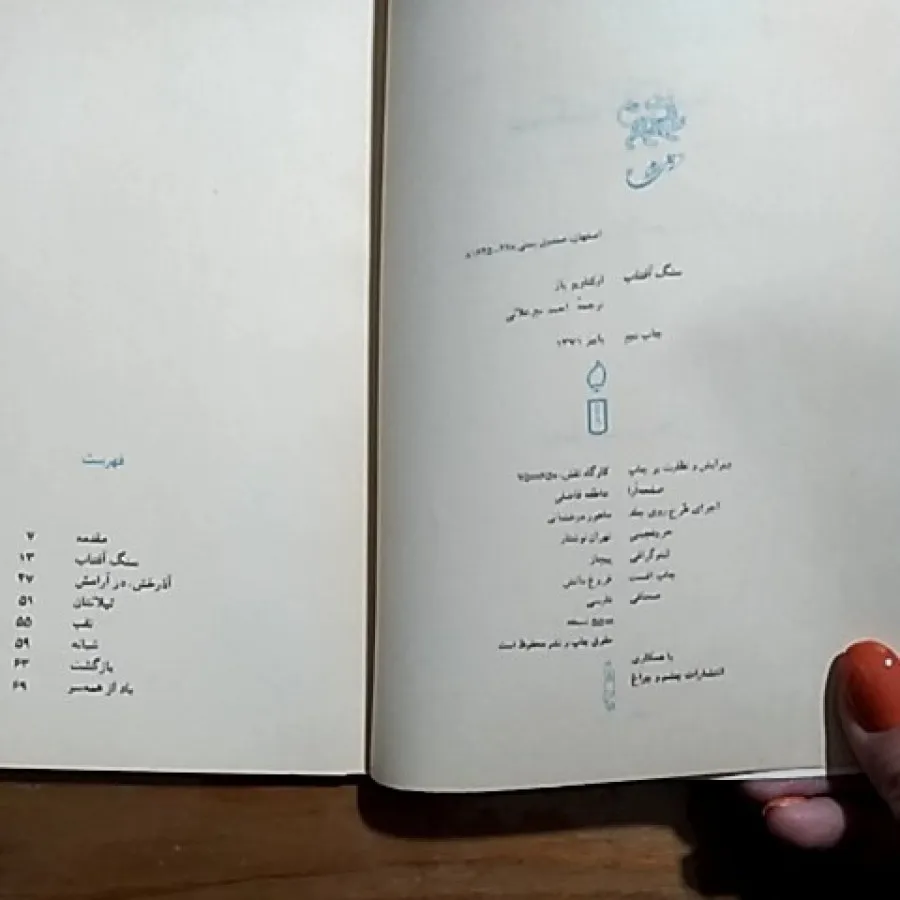 اصفهان، صندوق پستی
سنگ آفتاب اوکتاویو پاز
ترجمهٔ احمد میرعلائی
چاپ پاییز ۱۳۷۱
ویرایش و نظارت بر چاپ کارگاه نقش،
صفحه‌آرا عاطفه فاضلی
اجرای طرح روی جلد
حروفچینی تهران نوشتار
لیتوگرافی پیچاز
چاپ افست فروغ دانش
صحافی فارسی
۵۵۰۰ نسخه
حقوق چاپ و نشر محفوظ است
با همکاری
انتشارات چشم و چراغ
فهرست
مقدمه ۷
سنگ آفتاب ۱۳
آذرخش در آرامش ۴۷
تهلانتان ۵۱
نقب ۵۵
شبانه ۵۹
بازگشت ۶۳
یاد از همه‌سر ۶۹